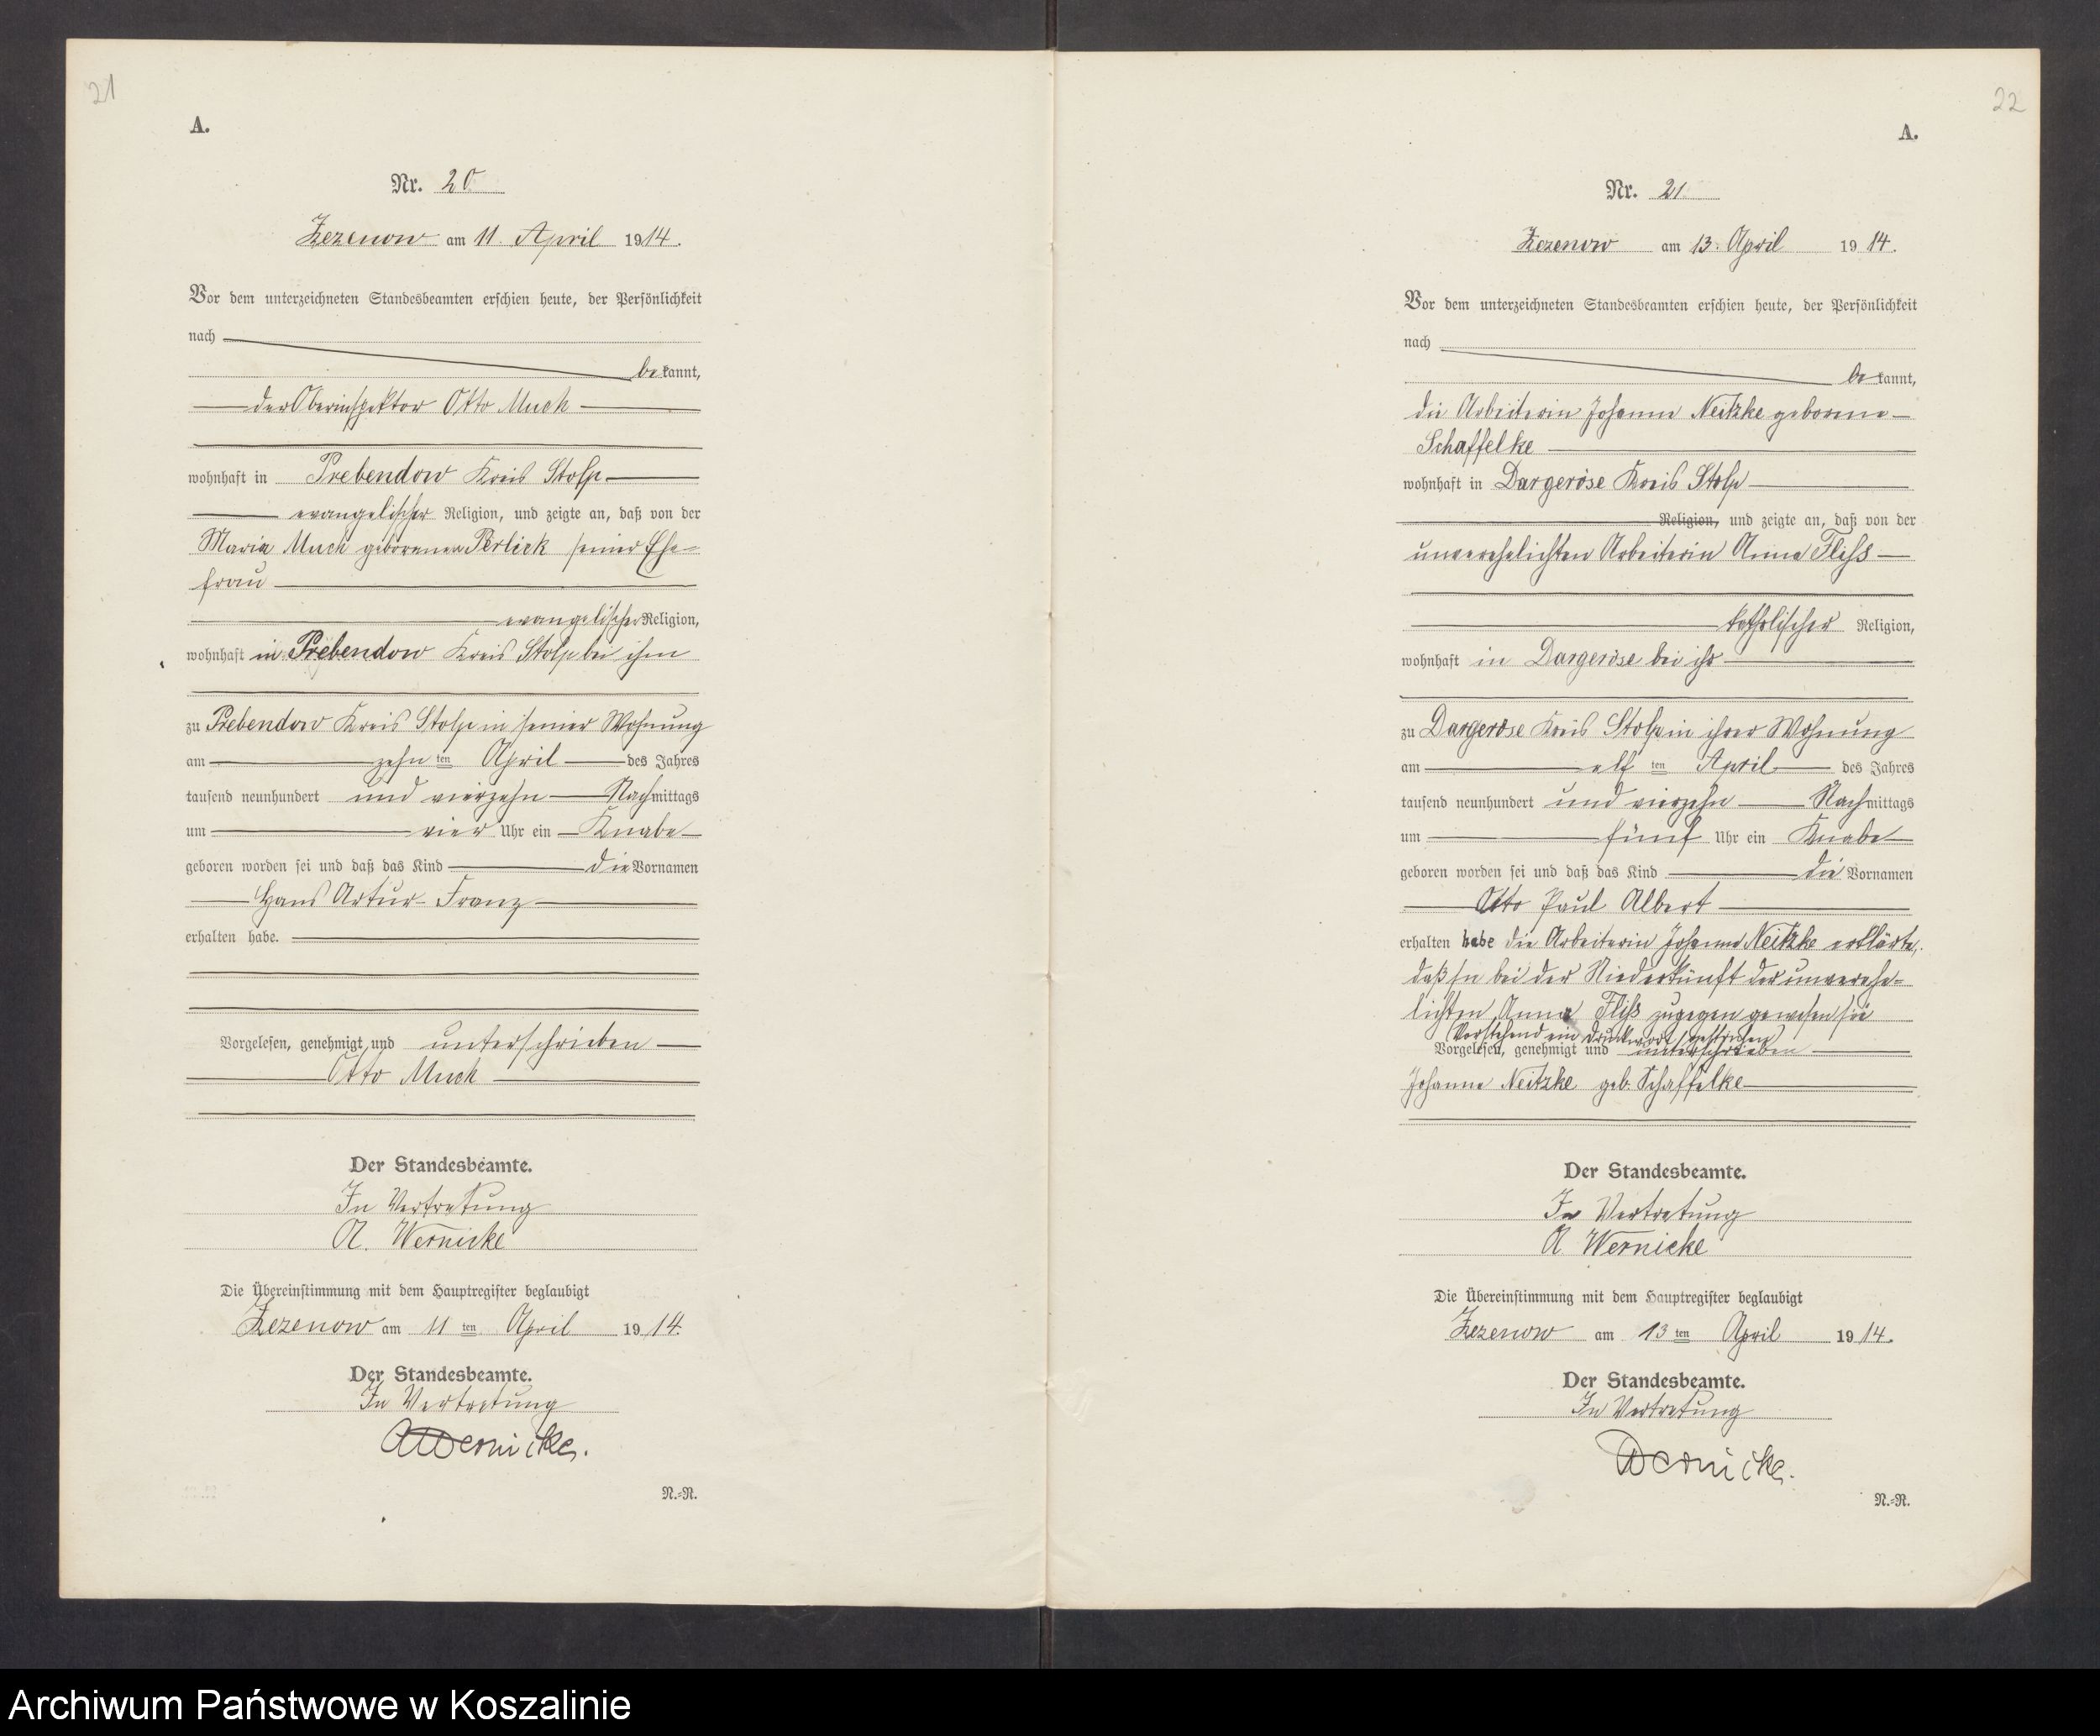 21
A.
Nr. 20
Zezenow am 11. April 1914.
Vor dem unterzeichneten Standesbeamten erschien heute, der Persönlichkeit
nach
bekannt,
der Oberinspektor Otto Much
wohnhaft in Prebendow Kreis Stolp
evangelischer Religion, und zeigte an, daß von der
Maria Much geborenen Perlick seiner Ehe=
frau
evangelischer Religion,
wohnhaft in Prebendow Kreis Stolp bei ihm
zu Prebendow Kreis Stolp in seiner Wohnung
am zehn ten April des Jahres
tausend neunhundert und vierzehn Nachmittags
um vier Uhr ein Knabe
geboren worden sei und daß das Kind die Vornamen
Hans Artur Franz
erhalten habe.
Vorgelesen, genehmigt und unterschrieben
Otto Much
Der Standesbeamte.
In Vertretung
A. Wernicke
Die Übereinstimmung mit dem Hauptregister beglaubigt
Zezenow am 11 ten April 1914.
Der Standesbeamte.
In Vertretung
AWernicke.
N.=R.
22
A.
Nr. 21
Zezenow am 13. April 1914.
Vor dem unterzeichneten Standesbeamten erschien heute, der Persönlichkeit
nach
bekannt,
die Arbeiterin Johanne Neitzke geborene
Schaffelke
wohnhaft in Dargeröse Kreis Stolp
Religion, und zeigte an, daß von der
unverehelichten Arbeiterin Anna Fliss
katholischer Religion,
wohnhaft in Dargeröse bei ihr
zu Dargeröse Kreis Stolp in ihrer Wohnung
am elf ten April des Jahres
tausend neunhundert und vierzehn Nachmittags
um fünf Uhr ein Knabe
geboren worden sei und daß das Kind die Vornamen
Otto Paul Albert
erhalten habe die Arbeiterin Johanne Neitzke erklärte,
daß sie bei der Niederkunft der unverehe=
lichten Anna Fliss zugegen gewesen sei
Vorstehend ein Druckwort gestrichen
Vorgelesen, genehmigt und unterschrieben
Johanne Neitzke geb. Schaffelke
Der Standesbeamte.
In Vertretung
A Wernicke
Die Übereinstimmung mit dem Hauptregister beglaubigt
Zezenow am 13 ten April 1914.
Der Standesbeamte.
In Vertretung
Wernicke.
N.=R.
Archiwum Państwowe w Koszalinie